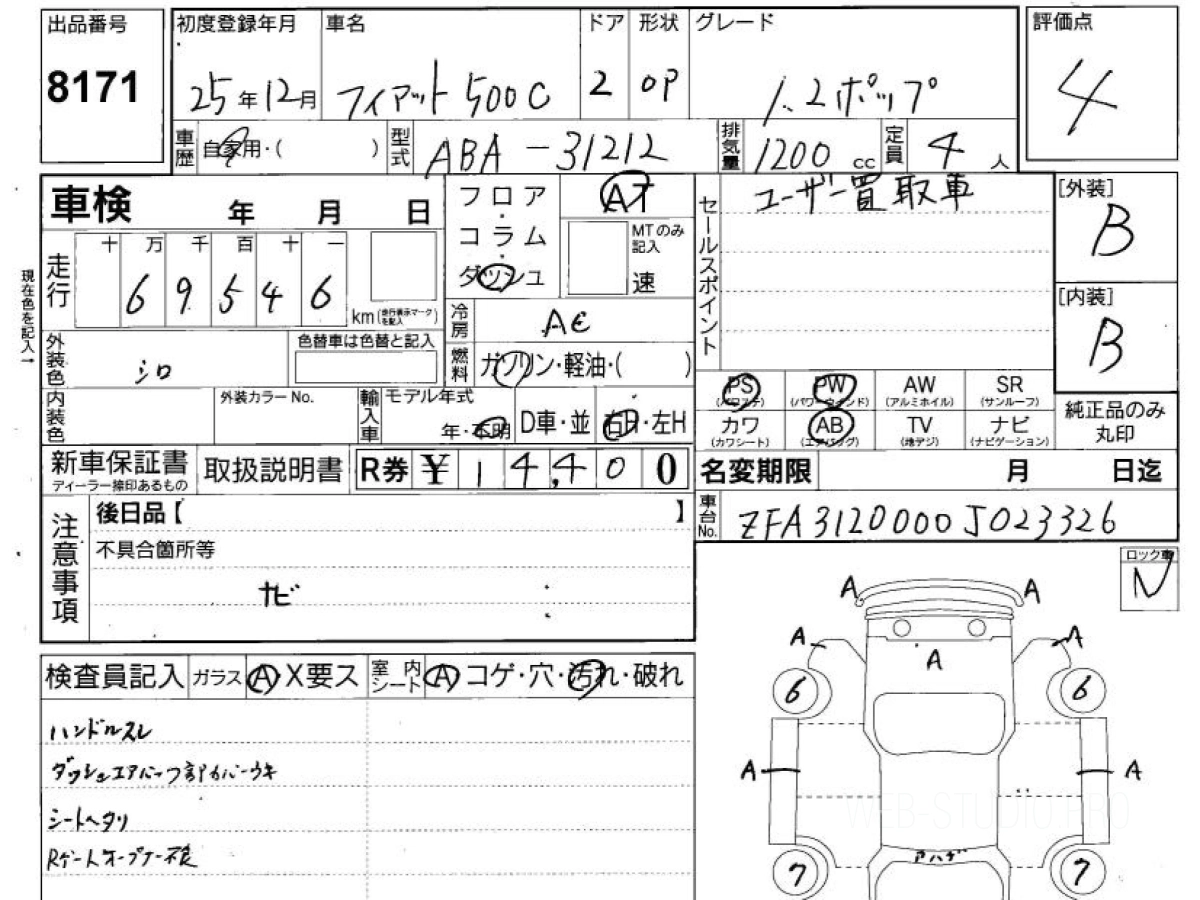 出品番号
8171
初度登録年月
25年12月
車名
フィアット 500C
ドア
2
形状
OP
グレード
1.2ポップ
評価点
4
車歴
自家用・( )
型式
ABA-31212
排気量
1200 cc
定員
4 人
車検 年 月 日
現在色を記入→
走行
十 万 千 百 十 一
6 9 5 4 6
km (走行表示マークを記入)
外装色
シロ
色替車は色替と記入
内装色
外装カラーNo.
輸入車
モデル年式
年・不明
D車・並
右H・左H
フロア・コラム・ダッシュ
AT
MTのみ記入
速
冷房
AC
燃料
ガソリン・軽油・( )
セールスポイント
ユーザー買取車
[外装]
B
[内装]
B
PS (パワステ)
PW (パワーウインド)
AW (アルミホイル)
SR (サンルーフ)
カワ (カワシート)
AB (エアバッグ)
TV (地デジ)
ナビ (ナビゲーション)
純正品のみ丸印
新車保証書
ディーラー捺印あるもの
取扱説明書
R券 ¥ 14,400
名変期限 月 日迄
注意事項
後日品【 】
不具合箇所等
サビ
車台No.
ZFA3120000J023326
ロック車
N
検査員記入
ガラス
A X要ス
室内シート
A コゲ・穴・汚れ・破れ
ハンドルスレ
ダッシュエアバッグ部カバーウキ
シートヘタリ
Rゲートオープナー不良
A A
A A
A
6 6
A A
アハゲ
7 7
WEB-STUDIO.PRO